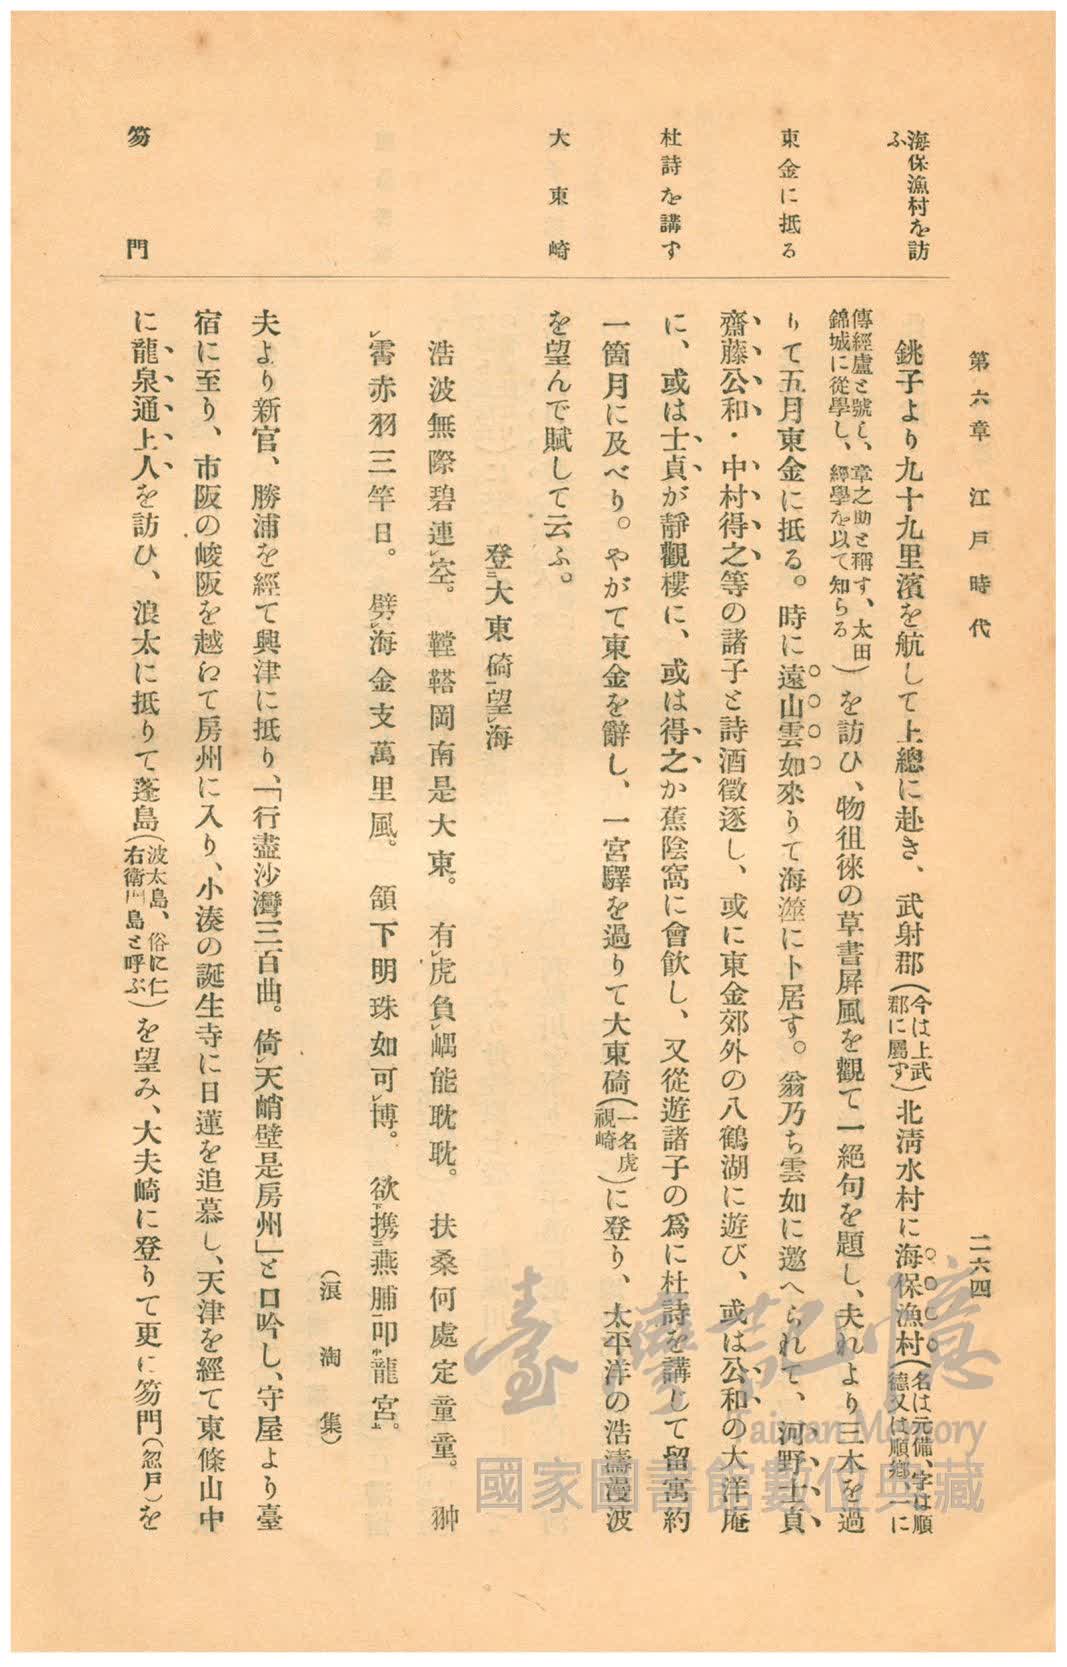 第六章　江戸時代
二六四
海保漁村を訪ふ
東金に抵る
杜詩を講す
大東崎
笏門
銚子より九十九里濱を航して上總に赴き、武射郡(今は上武郡に屬す)北淸水村に海保漁村(名は元備、字は順德又は順鄕、一に
傳經廬と號し、章之助と稱す、太田錦城に從學し、經學を以て知らる)を訪ひ、物徂徠の草書屛風を觀て一絕句を題し、夫れより三木を過
りて五月東金に抵る。時に遠山雲如來りて海澨に卜居す。翁乃ち雲如に邀へられて、河野士貞
齋藤公和・中村得之等の諸子と詩酒徵逐し、或に東金郊外の八鶴湖に遊び、或は公和の大洋庵
に、或は士貞が靜觀樓に、或は得之か蕉陰窩に會飮し、又從遊諸子の爲に杜詩を講じて留寓約
一箇月に及べり。やがて東金を辭し、一宮驛を過りて大東碕(一名虎視崎)に登り、太平洋の浩濤漫波
を望んで賦して云ふ。
登二大東碕一望レ海
浩波無際碧連レ空。鞺鞳岡南是大東。有レ虎負レ嵎能耽耽。扶桑何處定童童。翀
レ霄赤羽三竿日。劈レ海金支萬里風。頷下明珠如可レ博。欲下携二燕脯一叩中龍宮上。
(浪淘集)
夫より新官、勝浦を經て興津に抵り、「行盡沙灣三百曲。倚レ天峭壁是房州」と口吟し、守屋より臺
宿に至り、市阪の峻阪を越ねて房州に入り、小湊の誕生寺に日蓮を追慕し、天津を經て東條山中
に龍泉通上人を訪ひ、浪太に抵りて蓬島(波太島、俗に仁右衞門島と呼ぶ)を望み、大夫崎に登りて更に笏門(忽戸)を
臺灣記憶
Taiwan Memory
國家圖書館數位典藏